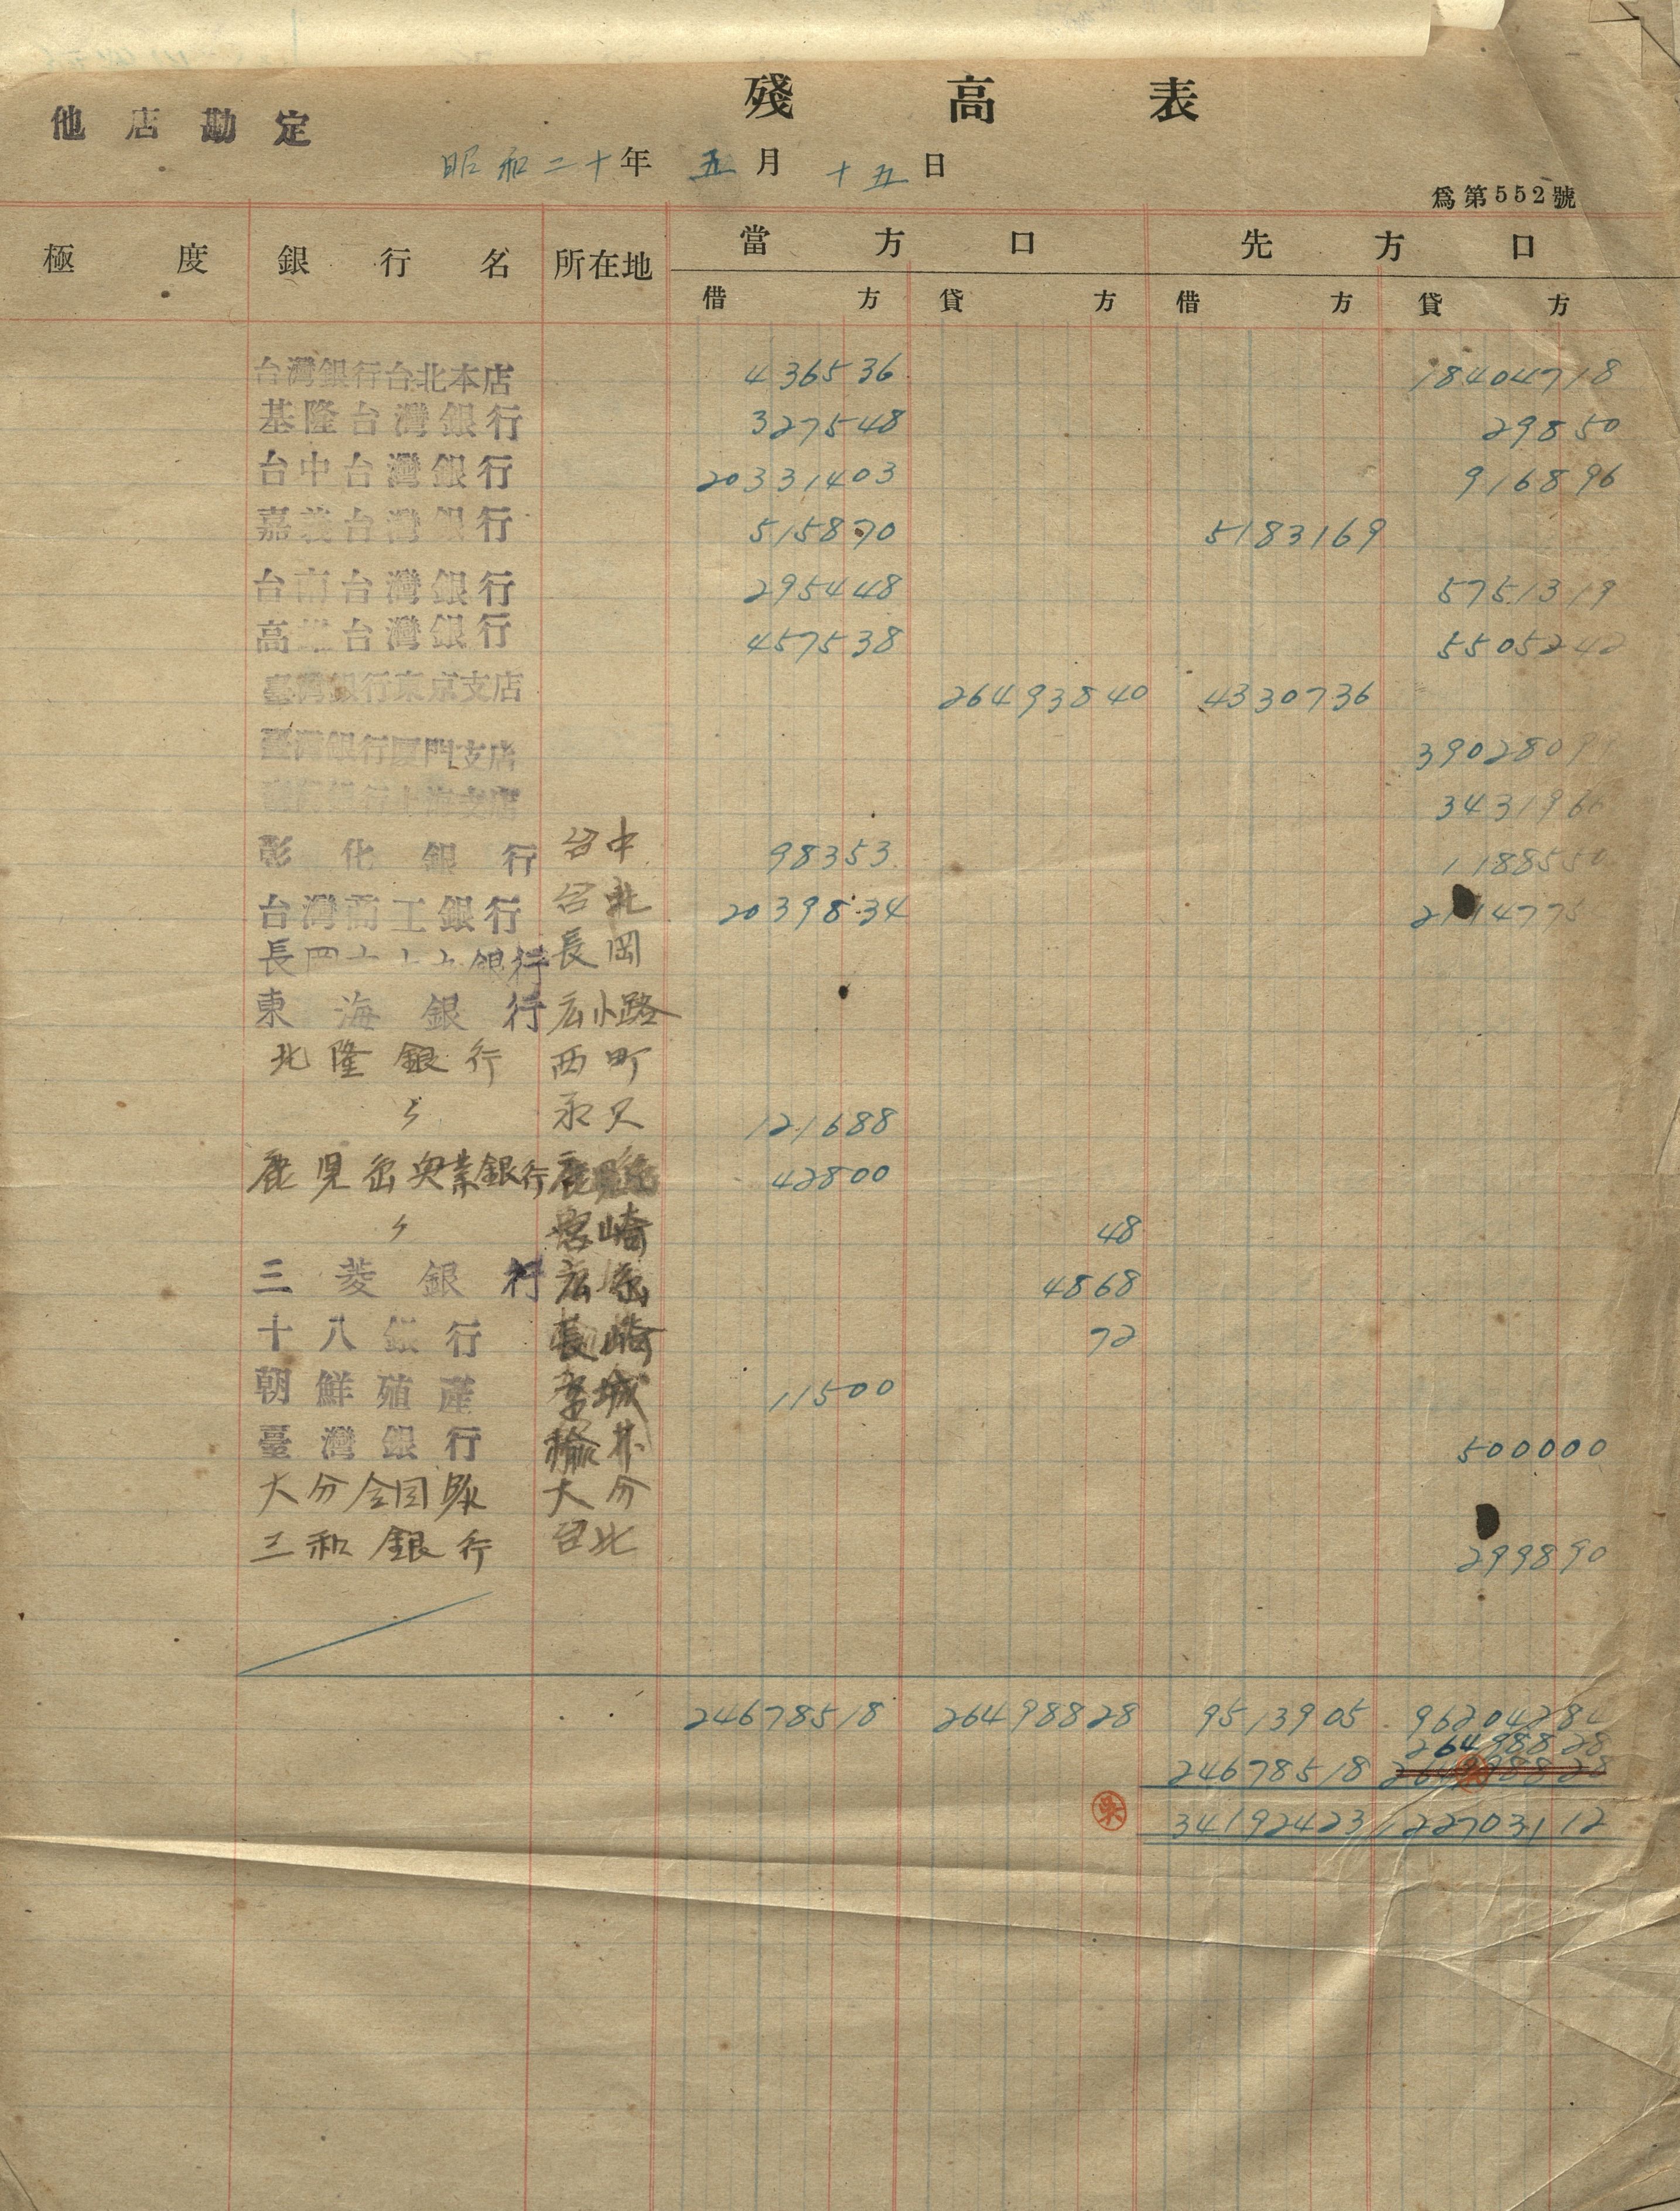 殘高表
他店勘定
昭和二十年 五月 十五日
爲第552號
極度 銀行名 所在地 當方口 先方口
借方 貸方 借方 貸方
台灣銀行台北本店 436536 18404718
基隆台灣銀行 327548 29850
台中台灣銀行 20331403 916896
嘉義台灣銀行 515870 5183169
台南台灣銀行 295448 5751319
高雄台灣銀行 457538 5505242
臺灣銀行東京支店 26493840 4330736
臺灣銀行廈門支店
臺灣銀行上海支店
彰化銀行 台中 98353 1188550
台灣商工銀行 台北 2039834
長岡六十九銀行 長岡
東海銀行 広小路
北隆銀行 西町
〃 121688
鹿児島興業銀行 鹿児島 42800
〃 宮崎 48
三菱銀行 広島 4868
十八銀行 長崎 72
朝鮮殖産 京城 11500
臺灣銀行 500000
大分合同 大分
三和銀行 台北 299890
24678518 26498828 9513905 96204284
26498828
24678518 26498828
34192423 122703112